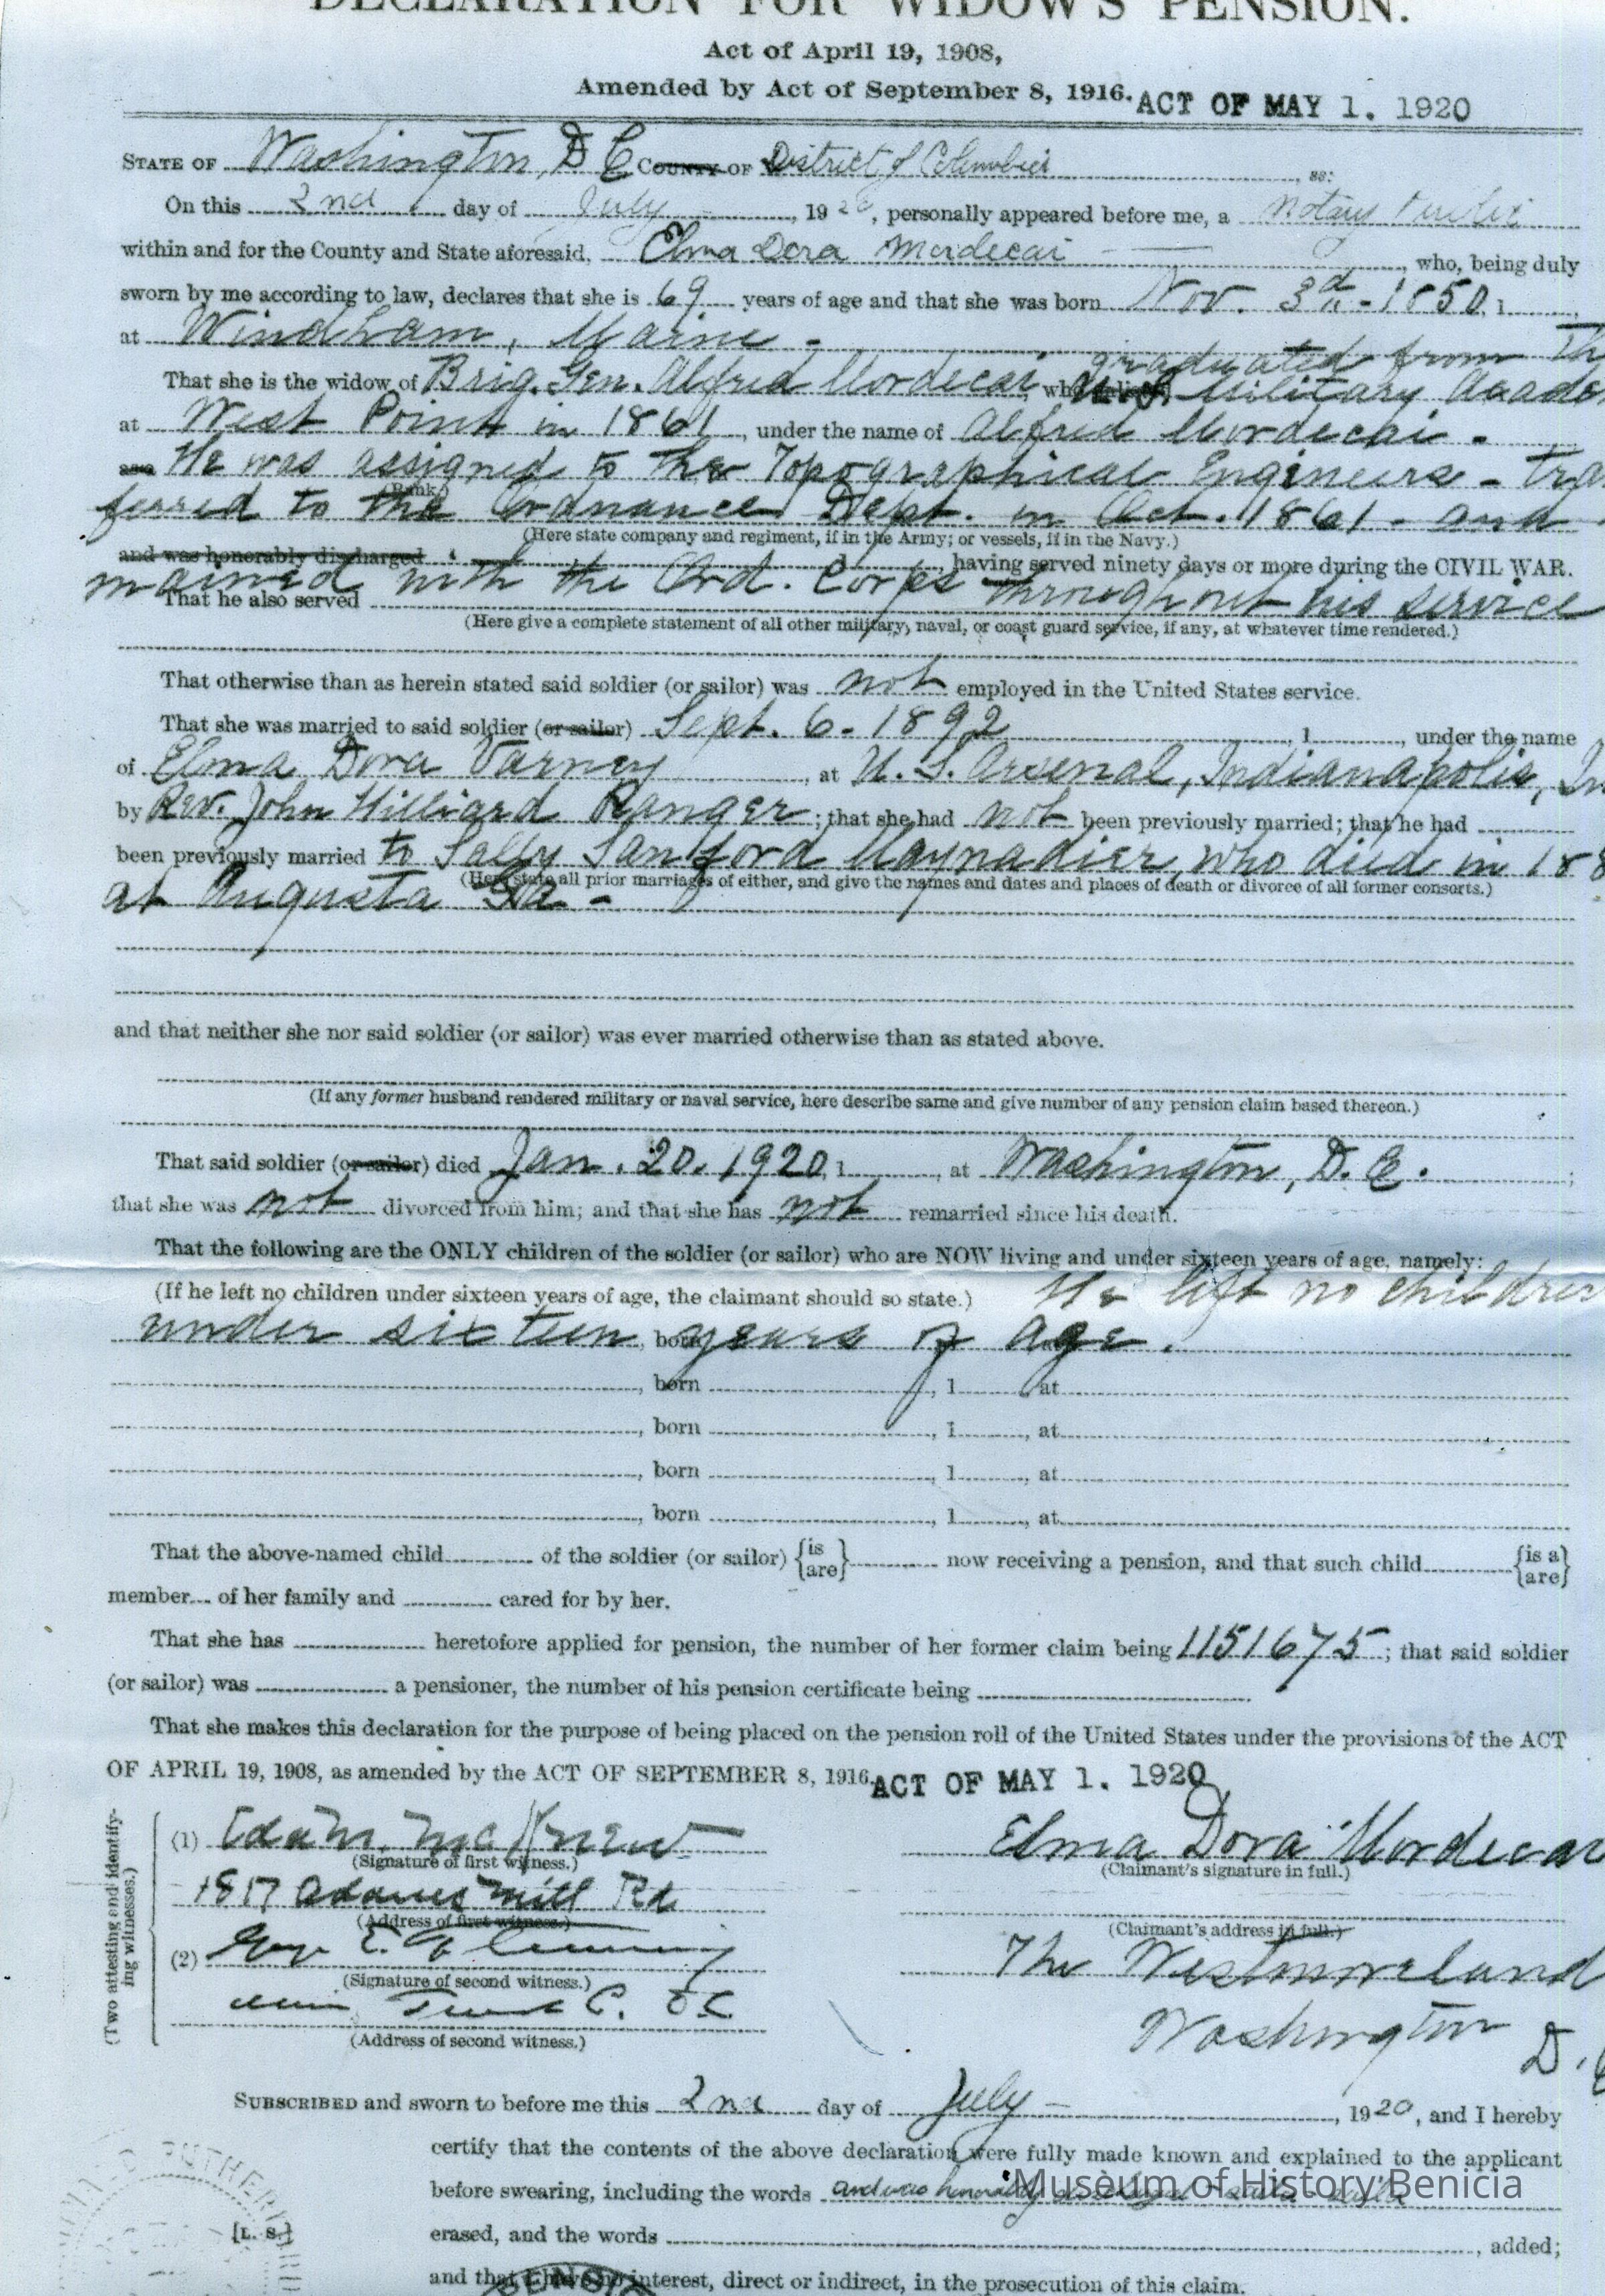 DECLARATION FOR WIDOW'S PENSION.
Act of April 19, 1908,
Amended by Act of September 8, 1916. ACT OF MAY 1. 1920
STATE OF Washington, D C COUNTY OF District of Columbia, ss:
On this 2nd day of July, 1920, personally appeared before me, a Notary Public
within and for the County and State aforesaid, Elma Dora Mordecai, who, being duly
sworn by me according to law, declares that she is 69 years of age and that she was born Nov. 3d - 1850, 1
at Windham, Maine -
graduated from Th
That she is the widow of Brig. Gen. Alfred Mordecai, who U.S. Military Acade
at West Point in 1861, under the name of Alfred Mordecai.
as a He was assigned to the Topographical Engineers - tra
(Rank.)
ferred to the Ordnance Dept. in Oct. 1861 - and
(Here state company and regiment, if in the Army; or vessels, if in the Navy.)
and was honorably discharged, having served ninety days or more during the CIVIL WAR.
mained with the Ord. Corps throughout his service
That he also served
(Here give a complete statement of all other military, naval, or coast guard service, if any, at whatever time rendered.)
That otherwise than as herein stated said soldier (or sailor) was not employed in the United States service.
That she was married to said soldier (or sailor) Sept. 6 - 1892, 1, under the name
of Elma Dora Varney, at U. S. Arsenal, Indianapolis, In
by Rev. John Hilliard Ranger; that she had not been previously married; that he had
been previously married to Sally Sanford Maynadier, who died in 188
(Here state all prior marriages of either, and give the names and dates and places of death or divorce of all former consorts.)
at Augusta Ga -
and that neither she nor said soldier (or sailor) was ever married otherwise than as stated above.
(If any former husband rendered military or naval service, here describe same and give number of any pension claim based thereon.)
That said soldier (or sailor) died Jan. 20. 1920, 1, at Washington, D. C.;
that she was not divorced from him; and that she has not remarried since his death.
That the following are the ONLY children of the soldier (or sailor) who are NOW living and under sixteen years of age, namely:
(If he left no children under sixteen years of age, the claimant should so state.) He left no children
under sixteen, born years of age.
, born, 1, at
, born, 1, at
, born, 1, at
, born, 1, at
That the above-named child of the soldier (or sailor) {is are} now receiving a pension, and that such child {is a are}
member of her family and cared for by her.
That she has heretofore applied for pension, the number of her former claim being 1151675; that said soldier
(or sailor) was a pensioner, the number of his pension certificate being
That she makes this declaration for the purpose of being placed on the pension roll of the United States under the provisions of the ACT
OF APRIL 19, 1908, as amended by the ACT OF SEPTEMBER 8, 1916. ACT OF MAY 1. 1920
(Two attesting and identifying witnesses.)
(1) McKnew
(Signature of first witness.)
Elma Dora Mordecai
(Claimant's signature in full.)
Adams Mill Rd
(Address of first witness.)
(Claimant's address in full.)
(2)
(Signature of second witness.)
The Westmoreland
(Address of second witness.)
Washington D. C
SUBSCRIBED and sworn to before me this 2nd day of July, 1920, and I hereby
certify that the contents of the above declaration were fully made known and explained to the applicant
before swearing, including the words and was honorably discharged
Museum of History Benicia
[L. S.]
erased, and the words, added;
and that I have no interest, direct or indirect, in the prosecution of this claim.